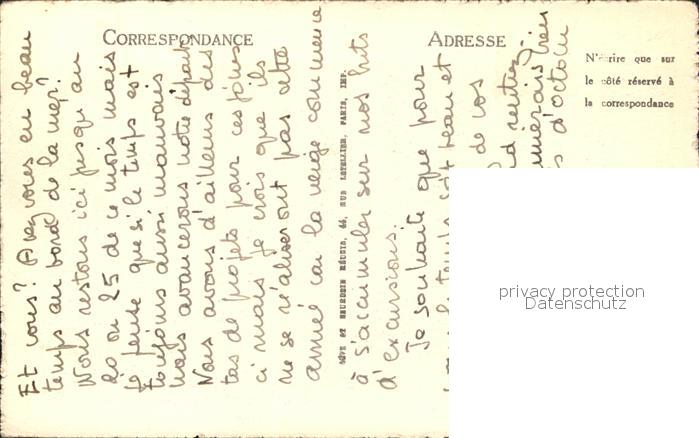 CORRESPONDANCE
ADRESSE
N'écrire que sur
le côté réservé à
la correspondance
Et vous? Avez vous eu beau
temps au bord de la mer?
Nous restons ici jusqu'au
20 ou 25 de ce mois mais
je pense que si le temps est
toujours aussi mauvais
nous avancerons notre départ
Nous avons d'ailleurs des
tas de projets pour ces jours
ci mais je crois que ils
ne se réaliseront pas cette
année car la neige commence
LÉVY ET NEURDEIN RÉUNIS, 44, RUE LETELLIER, PARIS, IMP.
à s'accumuler sur nos buts
d'excursions.
Je souhaite que pour
le temps soit beau et
de vos
d'octobre
privacy protection
Datenschutz